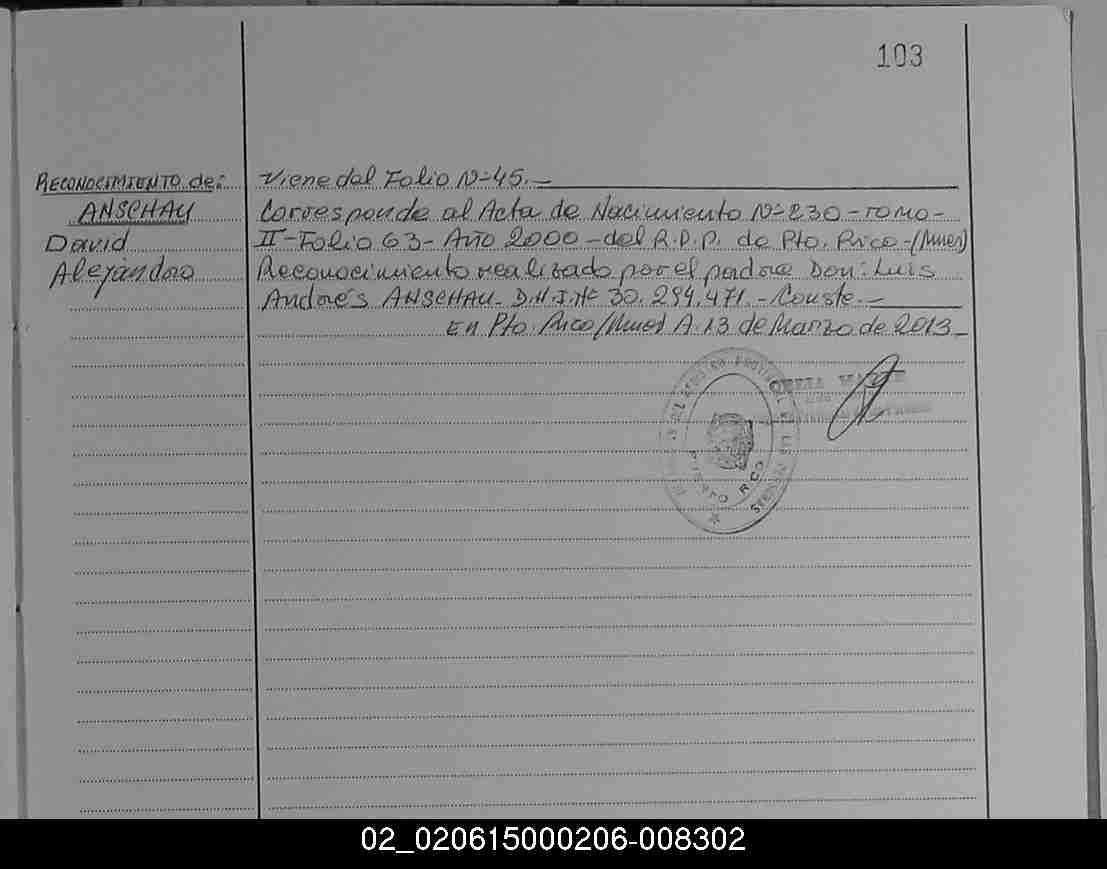 103
RECONOCIMIENTO de:
ANSCHAU
David
Alejandro
Viene del Folio Nº 45.-
Corresponde al Acta de Nacimiento Nº 230 - TOMO -
II - Folio 63 - Año 2000 - del R.D.P. de Pto. Rico - (Mnes)
Reconocimiento realizado por el padre Don: Luis
Andrés ANSCHAU - D.N.I. Nº 30.294.471. - Conste. -
En Pto. Rico/Mnes A 13 de Marzo de 2013 -
PUERTO RICO
02_020615000206-008302